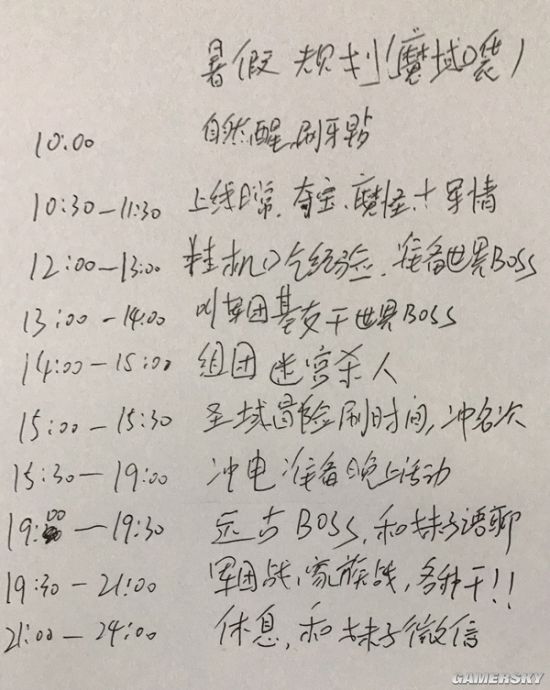 暑假规划(魔域口袋)
10:00 自然醒,刷牙
10:30-11:30 上线日常、夺宝、魔怪、十军情
12:00-13:00 挂机吃经验,准备世界BOSS
13:00-14:00 叫军团基友干世界BOSS
14:00-15:00 组团迷宫杀人
15:00-15:30 圣域冒险刷时间,冲名次
15:30-19:00 冲电准备晚上活动
19:00-19:30 远古BOSS,和妹子语聊
19:30-21:00 军团战,家族战,各种干!!
21:00-24:00 休息,和妹子微信
GAMERSKY